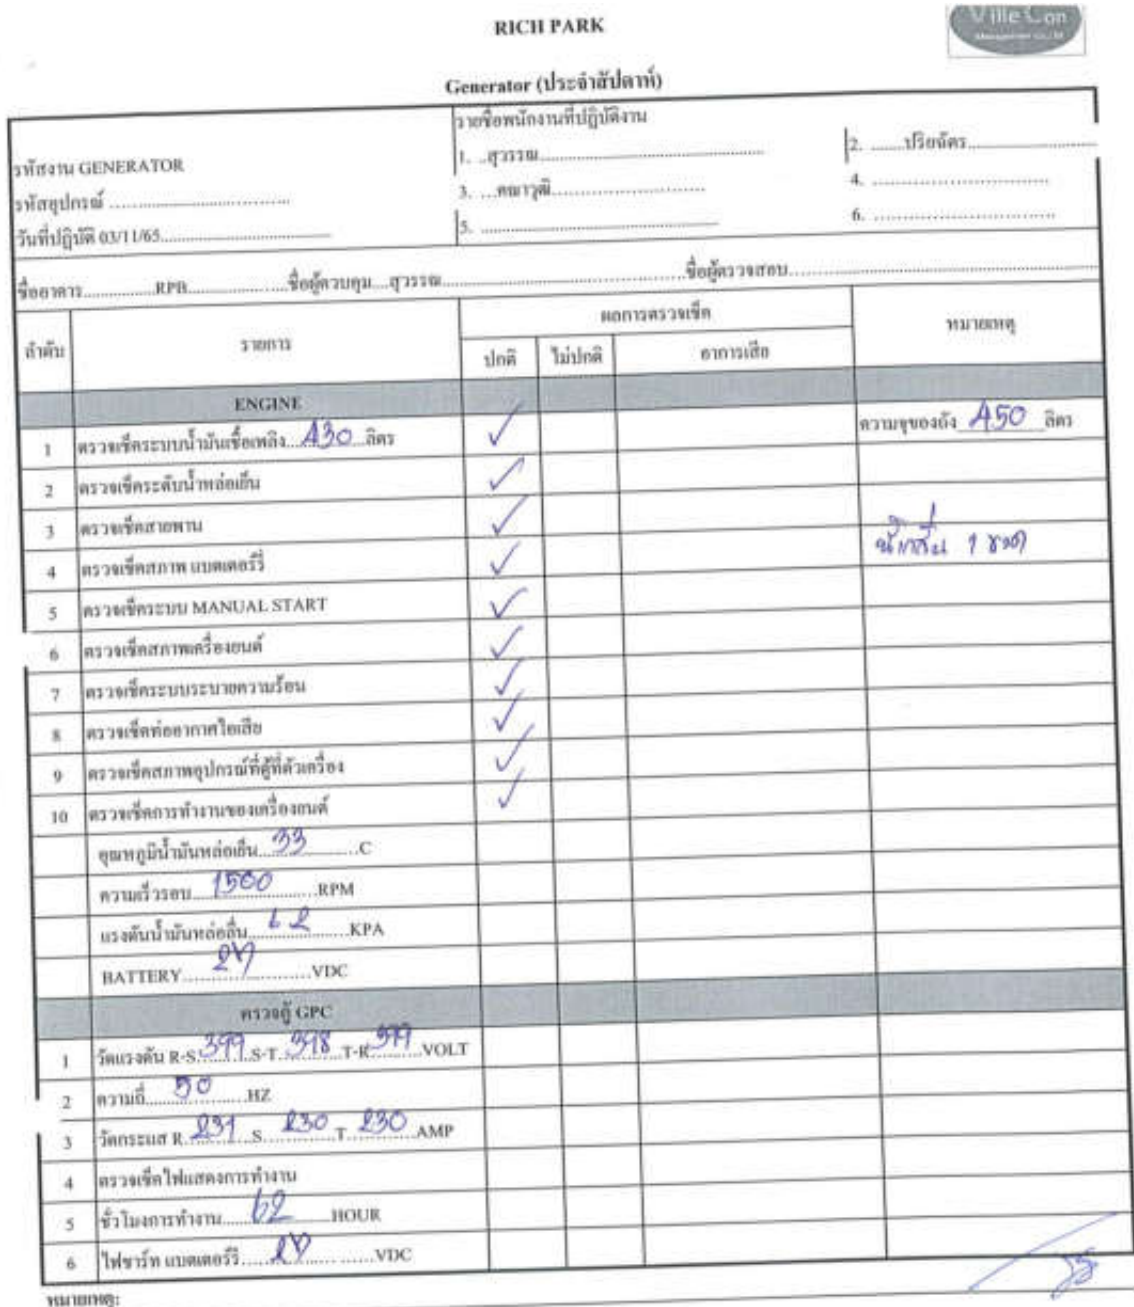 RICH PARK
Ville Con
Generator (ประจำสัปดาห์)
รายชื่อพนักงานที่ปฏิบัติงาน
รหัสงาน GENERATOR
1. ..สุวรรณ.......... 2. .......ปริยฉัตร..........
รหัสอุปกรณ์ ..........
3. ...คณาวุฒิ.......... 4. ..........
วันที่ปฏิบัติ 03/11/65..........
5. .......... 6. ..........
ชื่ออาคาร..........RPB..........ชื่อผู้ควบคุม....สุวรรณ..........ชื่อผู้ตรวจสอบ..........
ลำดับ รายการ ผลการตรวจเช็ค หมายเหตุ
ปกติ ไม่ปกติ อาการเสีย
ENGINE
1 ตรวจเช็คระบบน้ำมันเชื้อเพลิง....430 ลิตร ✓ ความจุของถัง 450 ลิตร
2 ตรวจเช็คระดับน้ำหล่อเย็น ✓
3 ตรวจเช็คสายพาน ✓
4 ตรวจเช็คสภาพ แบตเตอร์รี่ ✓ น้ำกลั่น 1 ขวด
5 ตรวจเช็คระบบ MANUAL START ✓
6 ตรวจเช็คสภาพเครื่องยนต์ ✓
7 ตรวจเช็คระบบระบายความร้อน ✓
8 ตรวจเช็คท่ออากาศไอเสีย ✓
9 ตรวจเช็คสภาพอุปกรณ์ที่ตู้ที่ตัวเครื่อง ✓
10 ตรวจเช็คการทำงานของเครื่องยนต์ ✓
อุณหภูมิน้ำมันหล่อเย็น....33..........C
ความเร็วรอบ....1500..........RPM
แรงดันน้ำมันหล่อลื่น....62..........KPA
BATTERY......24..........VDC
ตรวจตู้ GPC
1 วัดแรงดัน R-S.399 S-T.398 T-R.399 VOLT
2 ความถี่......50..........HZ
3 วัดกระแส R.231 S.230 T.230 AMP
4 ตรวจเช็คไฟแสดงการทำงาน
5 ชั่วโมงการทำงาน......62......HOUR
6 ไฟชาร์ท แบตเตอร์รี่......24..........VDC
หมายเหตุ: